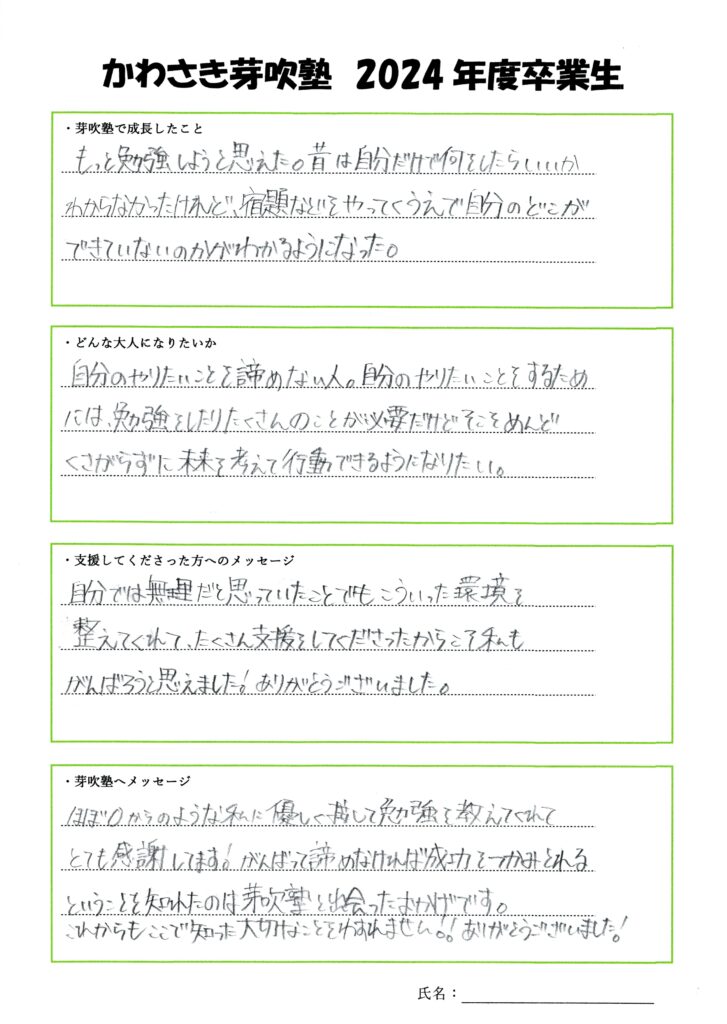 かわさき芽吹塾 2024年度卒業生
・芽吹塾で成長したこと
もっと勉強しようと思えた。昔は自分だけで何をしたらいいか
わからなかったけれど、宿題などをやってくうえで自分のどこが
できていないのかがわかるようになった。
・どんな大人になりたいか
自分のやりたいことを諦めない人。自分のやりたいことをするため
には、勉強をしたりたくさんのことが必要だけどそこをめんど
くさがらずに未来を考えて行動できるようになりたい。
・支援してくださった方へのメッセージ
自分では無理だと思っていたことでもこういった環境を
整えてくれて、たくさん支援をしてくださったからこそ私も
がんばろうと思えました!ありがとうございました。
・芽吹塾へメッセージ
ほぼ0からのような私に優しく接して勉強を教えてくれて
とても感謝してます!がんばって諦めなければ成功をつかみとれる
ということを知れたのは芽吹塾と出会ったおかげです。
これからもここで知った大切なことをわすれません。!ありがとうございました!
氏名：